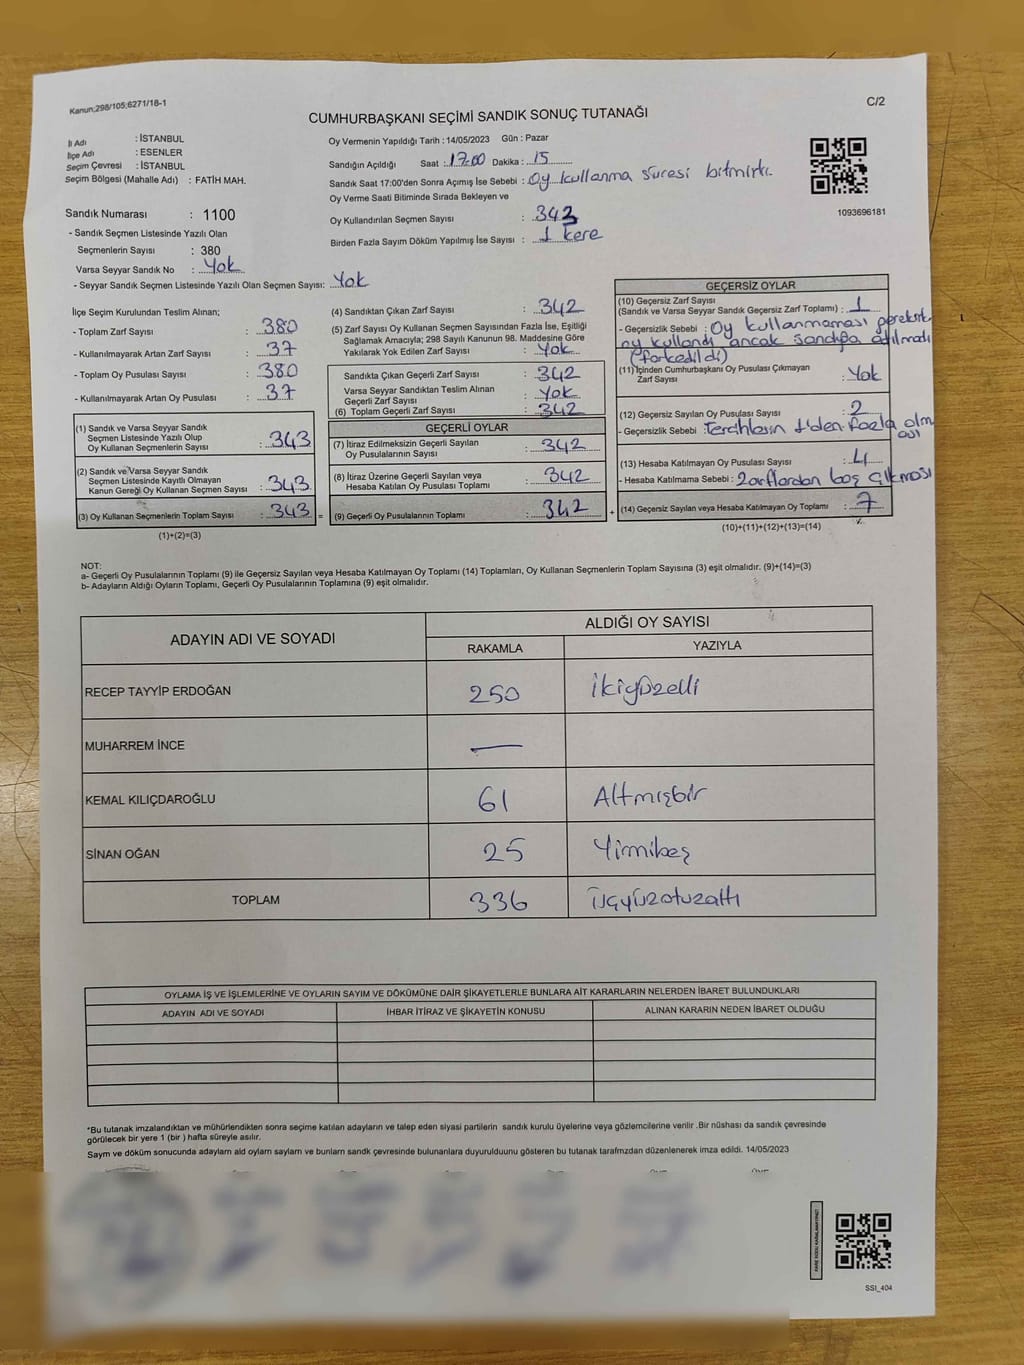 Kanun;298/105;6271/18-1
C/2
CUMHURBAŞKANI SEÇİMİ SANDIK SONUÇ TUTANAĞI
İl Adı : İSTANBUL
İlçe Adı : ESENLER
Seçim Çevresi : İSTANBUL
Seçim Bölgesi (Mahalle Adı) : FATİH MAH.
Oy Vermenin Yapıldığı Tarih : 14/05/2023 Gün : Pazar
Sandığın Açıldığı Saat : 17:00 Dakika : 15
Sandık Saat 17:00'den Sonra Açımış İse Sebebi : Oy kullanma süresi bitmiştir.
Oy Verme Saati Bitiminde Sırada Bekleyen ve
Oy Kullandırılan Seçmen Sayısı : 343
Birden Fazla Sayım Döküm Yapılmış İse Sayısı : 1 kere
1093696181
Sandık Numarası : 1100
- Sandık Seçmen Listesinde Yazılı Olan
Seçmenlerin Sayısı : 380
Varsa Seyyar Sandık No : Yok
- Seyyar Sandık Seçmen Listesinde Yazılı Olan Seçmen Sayısı: Yok
İlçe Seçim Kurulundan Teslim Alınan;
- Toplam Zarf Sayısı : 380
- Kullanılmayarak Artan Zarf Sayısı : 37
- Toplam Oy Pusulası Sayısı : 380
- Kullanılmayarak Artan Oy Pusulası : 37
(1) Sandık ve Varsa Seyyar Sandık
Seçmen Listesinde Yazılı Olup
Oy Kullanan Seçmenlerin Sayısı : 343
(2) Sandık ve Varsa Seyyar Sandık
Seçmen Listesinde Kayıtlı Olmayan
Kanun Gereği Oy Kullanan Seçmen Sayısı : 343
(3) Oy Kullanan Seçmenlerin Toplam Sayısı : 343 =
(1)+(2)=(3)
(4) Sandıktan Çıkan Zarf Sayısı : 342
(5) Zarf Sayısı Oy Kullanan Seçmen Sayısından Fazla İse, Eşitliği
Sağlamak Amacıyla; 298 Sayılı Kanunun 98. Maddesine Göre
Yakılarak Yok Edilen Zarf Sayısı : Yok
Sandıkta Çıkan Geçerli Zarf Sayısı : 342
Varsa Seyyar Sandıktan Teslim Alınan
Geçerli Zarf Sayısı : Yok
(6) Toplam Geçerli Zarf Sayısı : 342
GEÇERLİ OYLAR
(7) İtiraz Edilmeksizin Geçerli Sayılan
Oy Pusulalarının Sayısı : 342
(8) İtiraz Üzerine Geçerli Sayılan veya
Hesaba Katılan Oy Pusulası Toplamı : 342
(9) Geçerli Oy Pusulalarının Toplamı : 342 +
GEÇERSİZ OYLAR
(10) Geçersiz Zarf Sayısı
(Sandık ve Varsa Seyyar Sandık Geçersiz Zarf Toplamı) : 1
- Geçersizlik Sebebi : Oy kullanmaması gerekirken
oy kullandı ancak sandığa atılmadı
(farkedildi)
(11) İçinden Cumhurbaşkanı Oy Pusulası Çıkmayan
Zarf Sayısı : Yok
(12) Geçersiz Sayılan Oy Pusulası Sayısı : 2
- Geçersizlik Sebebi : Tercihlerin 1'den fazla olm
ası
(13) Hesaba Katılmayan Oy Pusulası Sayısı : 4
- Hesaba Katılmama Sebebi : Zarflardan boş çıkması
(14) Geçersiz Sayılan veya Hesaba Katılmayan Oy Toplamı : 7
(10)+(11)+(12)+(13)=(14)
NOT:
a- Geçerli Oy Pusulalarının Toplamı (9) ile Geçersiz Sayılan veya Hesaba Katılmayan Oy Toplamı (14) Toplamları, Oy Kullanan Seçmenlerin Toplam Sayısına (3) eşit olmalıdır. (9)+(14)=(3)
b- Adayların Aldığı Oyların Toplamı, Geçerli Oy Pusulalarının Toplamına (9) eşit olmalıdır.
ADAYIN ADI VE SOYADI
ALDIĞI OY SAYISI
RAKAMLA YAZIYLA
RECEP TAYYİP ERDOĞAN 250 ikiyüzelli
MUHARREM İNCE —
KEMAL KILIÇDAROĞLU 61 Altmışbir
SİNAN OĞAN 25 Yirmibeş
TOPLAM 336 üçyüzotuzaltı
OYLAMA İŞ VE İŞLEMLERİNE VE OYLARIN SAYIM VE DÖKÜMÜNE DAİR ŞİKAYETLERLE BUNLARA AİT KARARLARIN NELERDEN İBARET BULUNDUKLARI
ADAYIN ADI VE SOYADI İHBAR İTİRAZ VE ŞİKAYETİN KONUSU ALINAN KARARIN NEDEN İBARET OLDUĞU
*Bu tutanak imzalandıktan ve mühürlendikten sonra seçime katılan adayların ve talep eden siyasi partilerin sandık kurulu üyelerine veya gözlemcilerine verilir .Bir nüshası da sandık çevresinde
görülecek bir yere 1 (bir ) hafta süreyle asılır.
Saym ve döküm sonucunda adaylarn ald oylarn saylam ve bunlarn sandk çevresinde bulunanlara duyurulduunu gösteren bu tutanak tarafmzdan düzenlenerek imza edildi. 14/05/2023
SSI_404